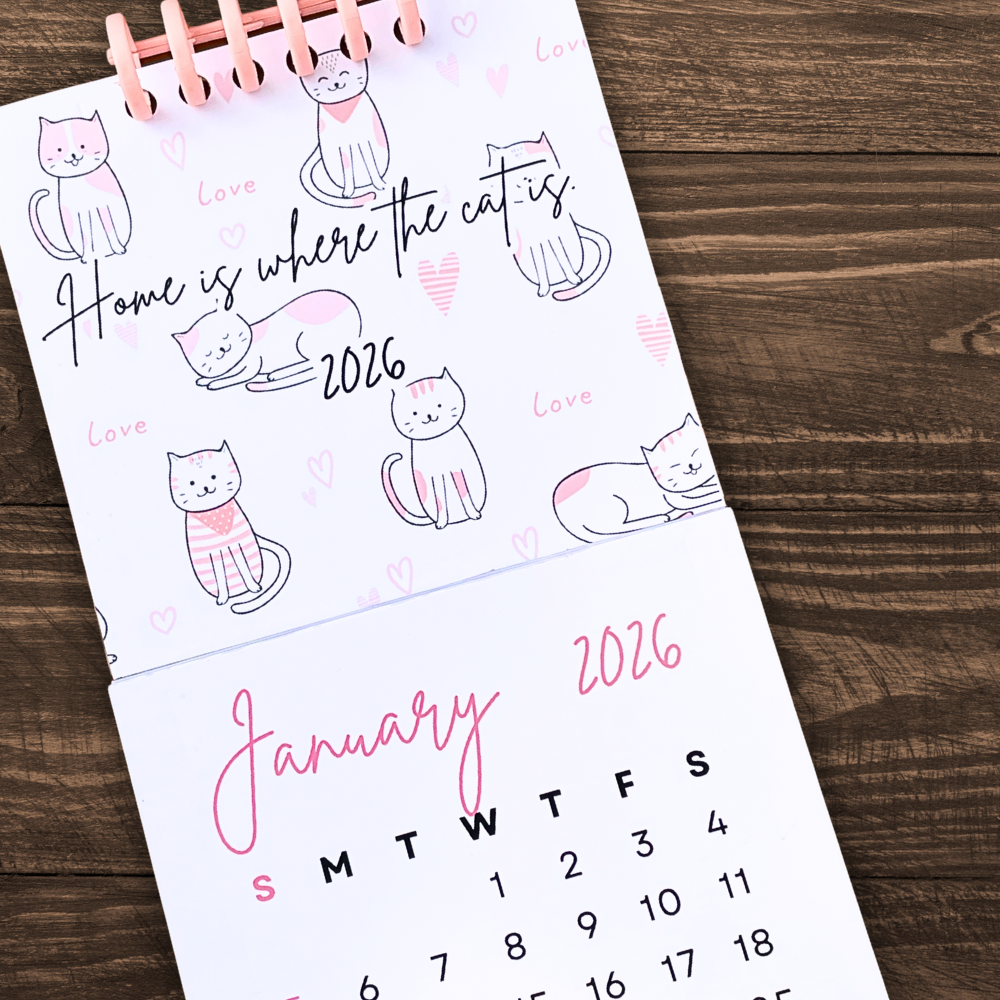 Love
Love
Home is where the cat is.
2026
Love
Love
January 2026
S M T W T F S
1 2 3 4
6 7 8 9 10 11
16 17 18